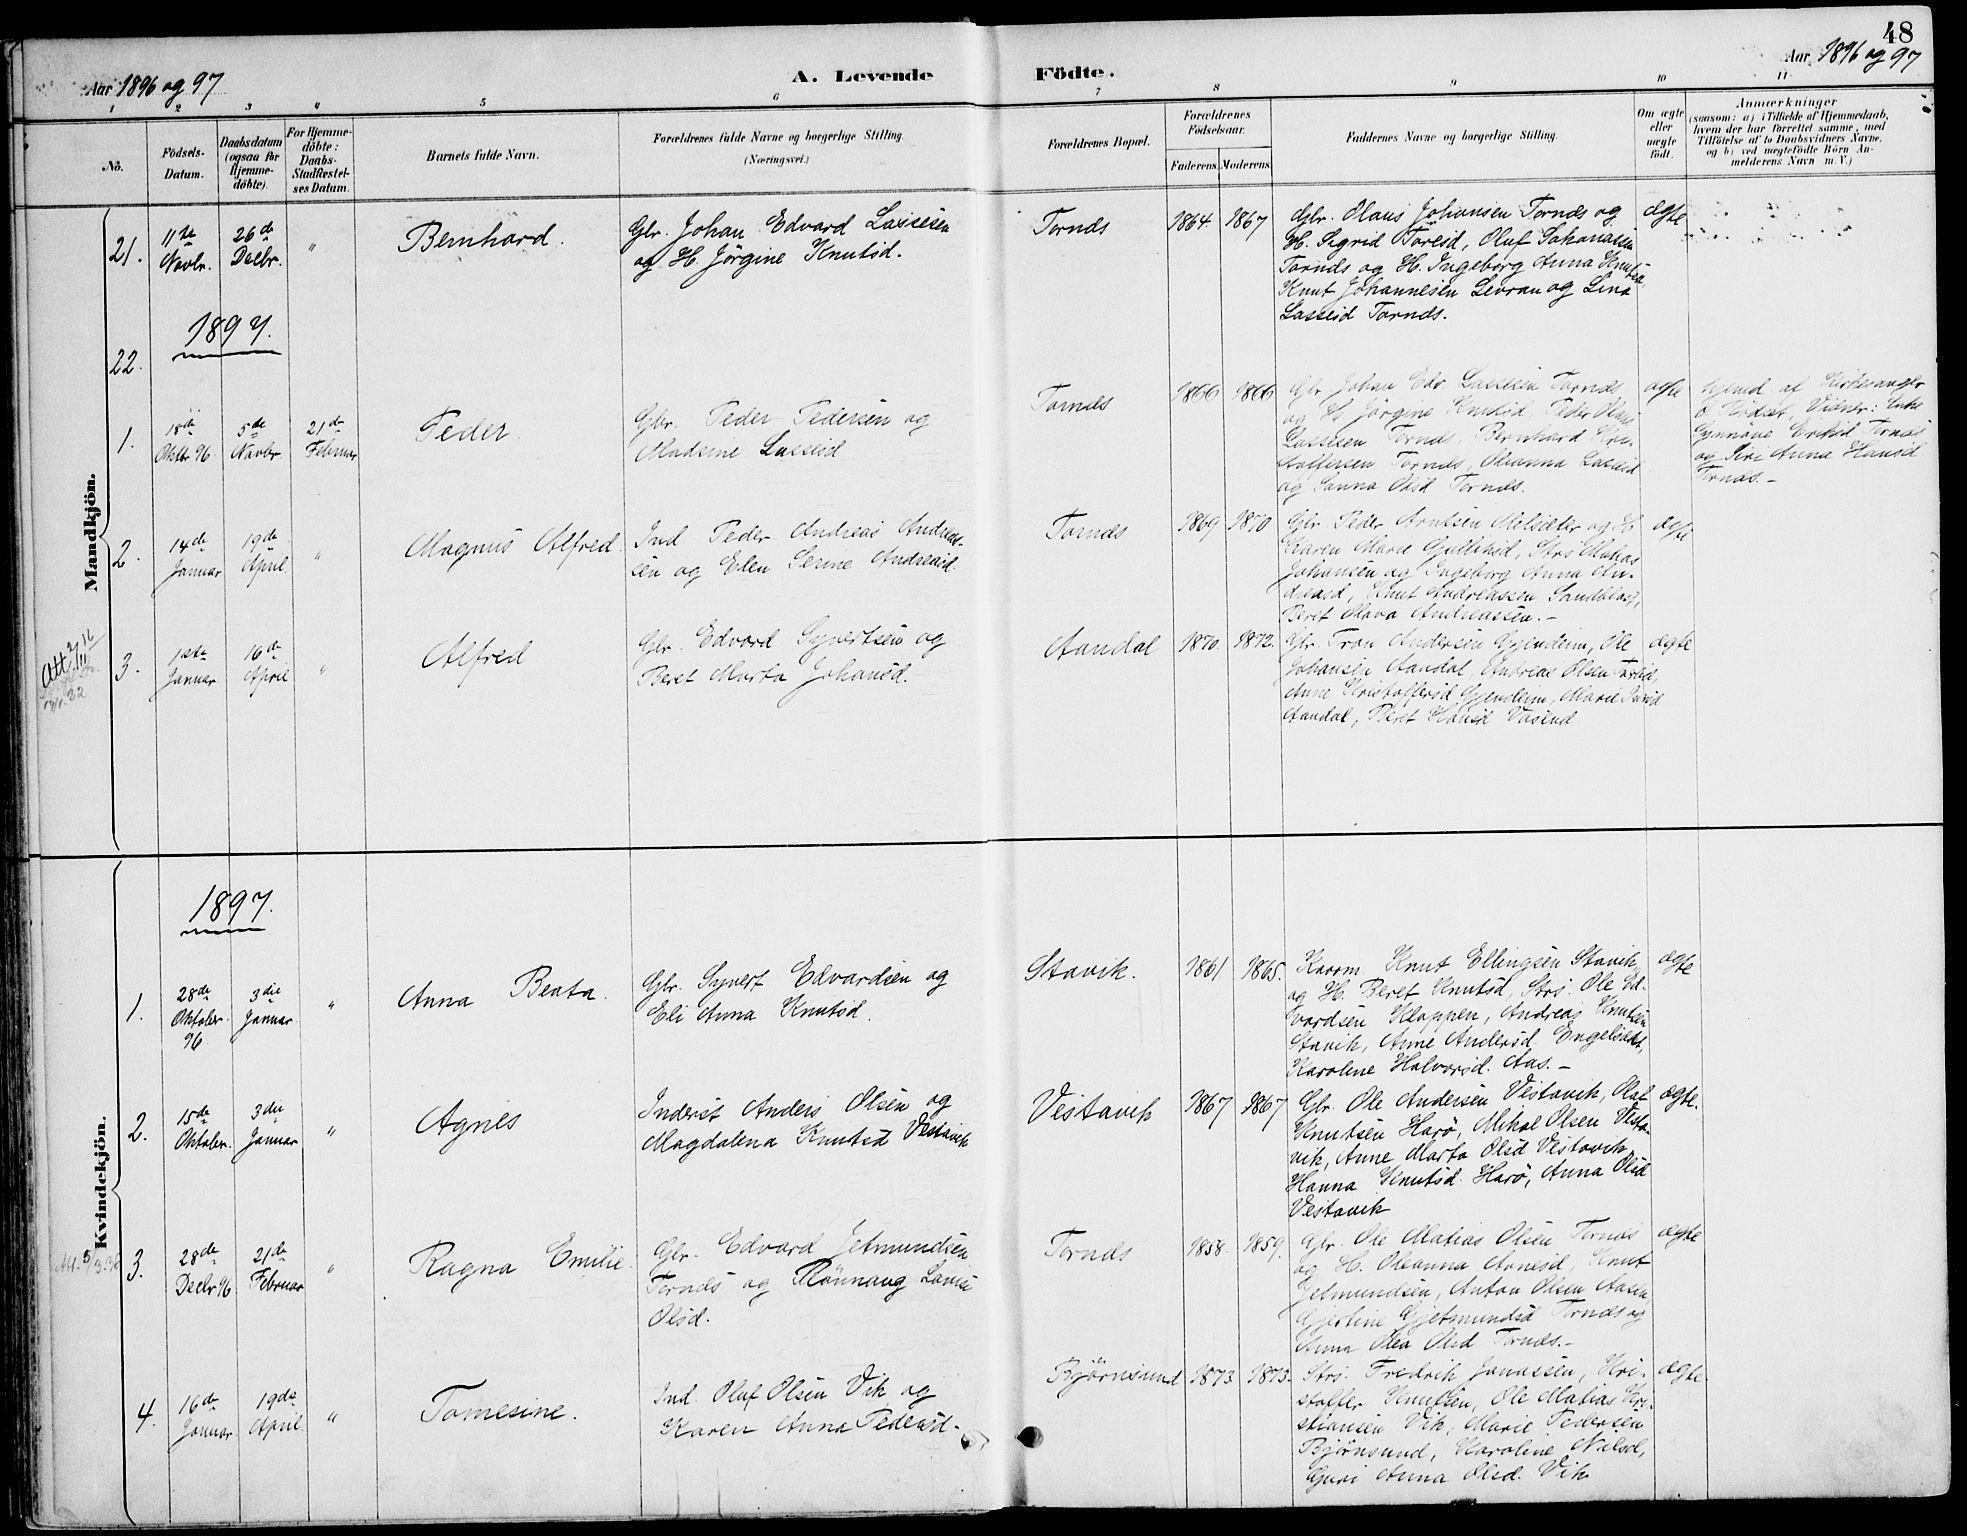 48
Aar 1896 og 97
A. Levende Födte.
Aar 1896 og 97
1 2 3 4 5 6 7 8 9 10 11
No.
Födsels-
Datum.
Daabsdatum
(ogsaa for
Hjemme-
döbte)
For Hjemme-
döbte:
Daabs-
Stadfæstel-
ses Datum.
Barnets fulde Navn.
Forældrenes fulde Navne og borgerlige Stilling.
(Næringsvei.)
Forældrenes Bopæl.
Forældrenes
Födselsaar.
Faderens. Moderens.
Faddernes Navne og borgerlige Stilling.
Om ægte
eller
uægte
födt.
Anmærkninger
(saasom: a) i Tilfælde af Hjemmedaab,
hvem der har forrettet samme, med
Tilföielse af to Daabsvidners Navne,
og b) ved uægtefödte Börn An-
melderens Navn m. V.)
Mandkjön.
21.
11te
Novbr.
26de
Decbr.
"
Bernhard.
Gbr. Johan Edvard Lassesen
og H. Jörgine Knutsd.
Tornæs
1864
1867
Gbr. Olaus Johansen Tornæs og
H. Sigrid Toresd, Oluf Johanassen
Tornæs og H. Ingeborg Anna Knutsd
Knut Johannesen Levran og Lina
Lassesd Tornæs.
ægte
1897.
22.
1.
18de
Oktbr 96
5te
Novbr
21de
Februar
Peder
Gbr. Peder Pedersen og
Madsine Lassesd
Tornæs
1866
1866
Gbr Johan Edv. Lassesen Tornæs
og H. Jörgine Knutsd, Peder Olaus
Lassesen Tornæs, Bernhard Kri-
stoffersen Tornæs, Oleanna Lassesd
og Sanna Olsd Tornæs.
ægte
Hjemd af Kirkesanger
O Rödset, Vidner: Enke
Synnöve Eriksd Tornæs
og Pige Anna Hansd
Tornæs.-
2.
14de
Januar
19de
April.
"
Magnus Alfred.
Ind. Peder Andreas Andreas-
sen og Elen Serine Andreasd.
Tornæs
1869
1870
Gbr Peder Arntsen Melsæter og H.
Karen Marie Gulliksd, Strs Matias
Johansen og Ingeborg Anna An-
dreasd, Knut Andreassen Sandblaast,
Beret Olava Andreassen.-
ægte
3.
1ste
Januar
16de
April
"
Alfred
Gbr. Edvard Syvertsen og
Beret Marta Johansd.
Aandal
1870.
1872.
Gbr. Tron Andersen Gjendem, Ole
Johansen Aandal, Andreas Olsen
Anne Kristoffersd Gjendem, Marie
Aandal, Beret Hansd Vasend
ægte
Kvindekjön.
1897.
1.
28de
Oktober.
96
3die
Januar
"
Anna Beata.
Gbr. Syvert Edvardsen og
Eli Anna Knutsd.
Stavik.
1861
1865.
Kaarm Knut Ellingsen Stavik
og H. Beret Knutsd, Strs. Ole Ed-
vardsen Kleppen, Andreas Knutsen
Stavik, Anne Andersd Engelsæt,
Karoline Halvorsd. Aas.-
ægte
2.
15de
Oktober.
3die
Januar
"
Agnes
Inderst Anders Olsen og
Magdalena Knutsd Vestavik
Vestavik
1867
1867
Gbr. Ole Andersen Vestavik, Olaf
Knutsen Harö, Mikal Olsen Vesta-
vik, Anne Marta Olsd Vestavik
Hanna Knutsd. Harö, Anna Olsd
Vestavik
ægte.
3.
28de
Decbr 96
21de
Februar
"
Ragna Emilie.
Gbr. Edvard Jetmundsen
Tornæs og Rönnaug Lovise
Olsd.
Tornæs
1858.
1859.
Gbr. Ole Matias Olsen Tornæs
og H. Oleanna Arnesd, Knut
Jetmundsen, Anton Olsen Aasen
Gjertine Gjetmundsd Tornæs og
Anna Olea Olsd Tornæs.-
ægte
4.
16de
Januar
19de
April
"
Tomesine.
Ind. Oluf Olsen Vik og
Karen Anna Pedersd.
Björnsund
1873
1873.
Strs. Fredrik Jonassen, Kri-
stoffer Knutsen, Ole Matias Kri-
stiansen Vik, Marie Pedersen
Björnsund, Karoline Nilsd,
Guri Anna Olsd. Vik
ægte.